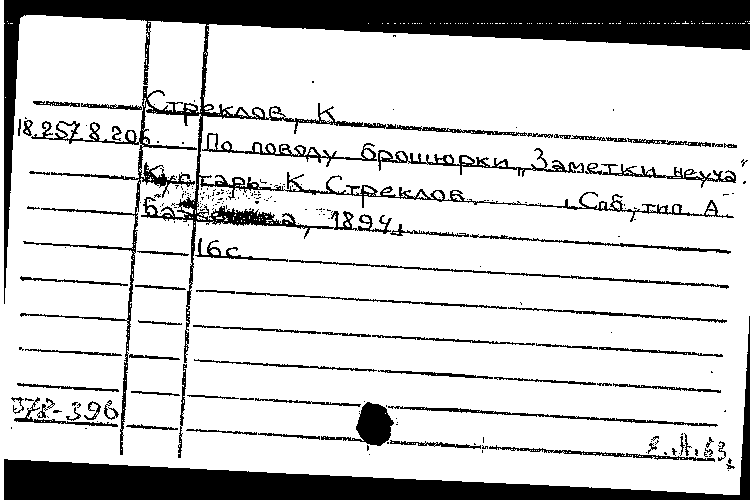 Стреклов, К.
18.257.8.206. По поводу брошюрки „Заметки неуча".
Кустарь К. Стреклов. , Спб, тип. А.
1894,
16 с.
378-396